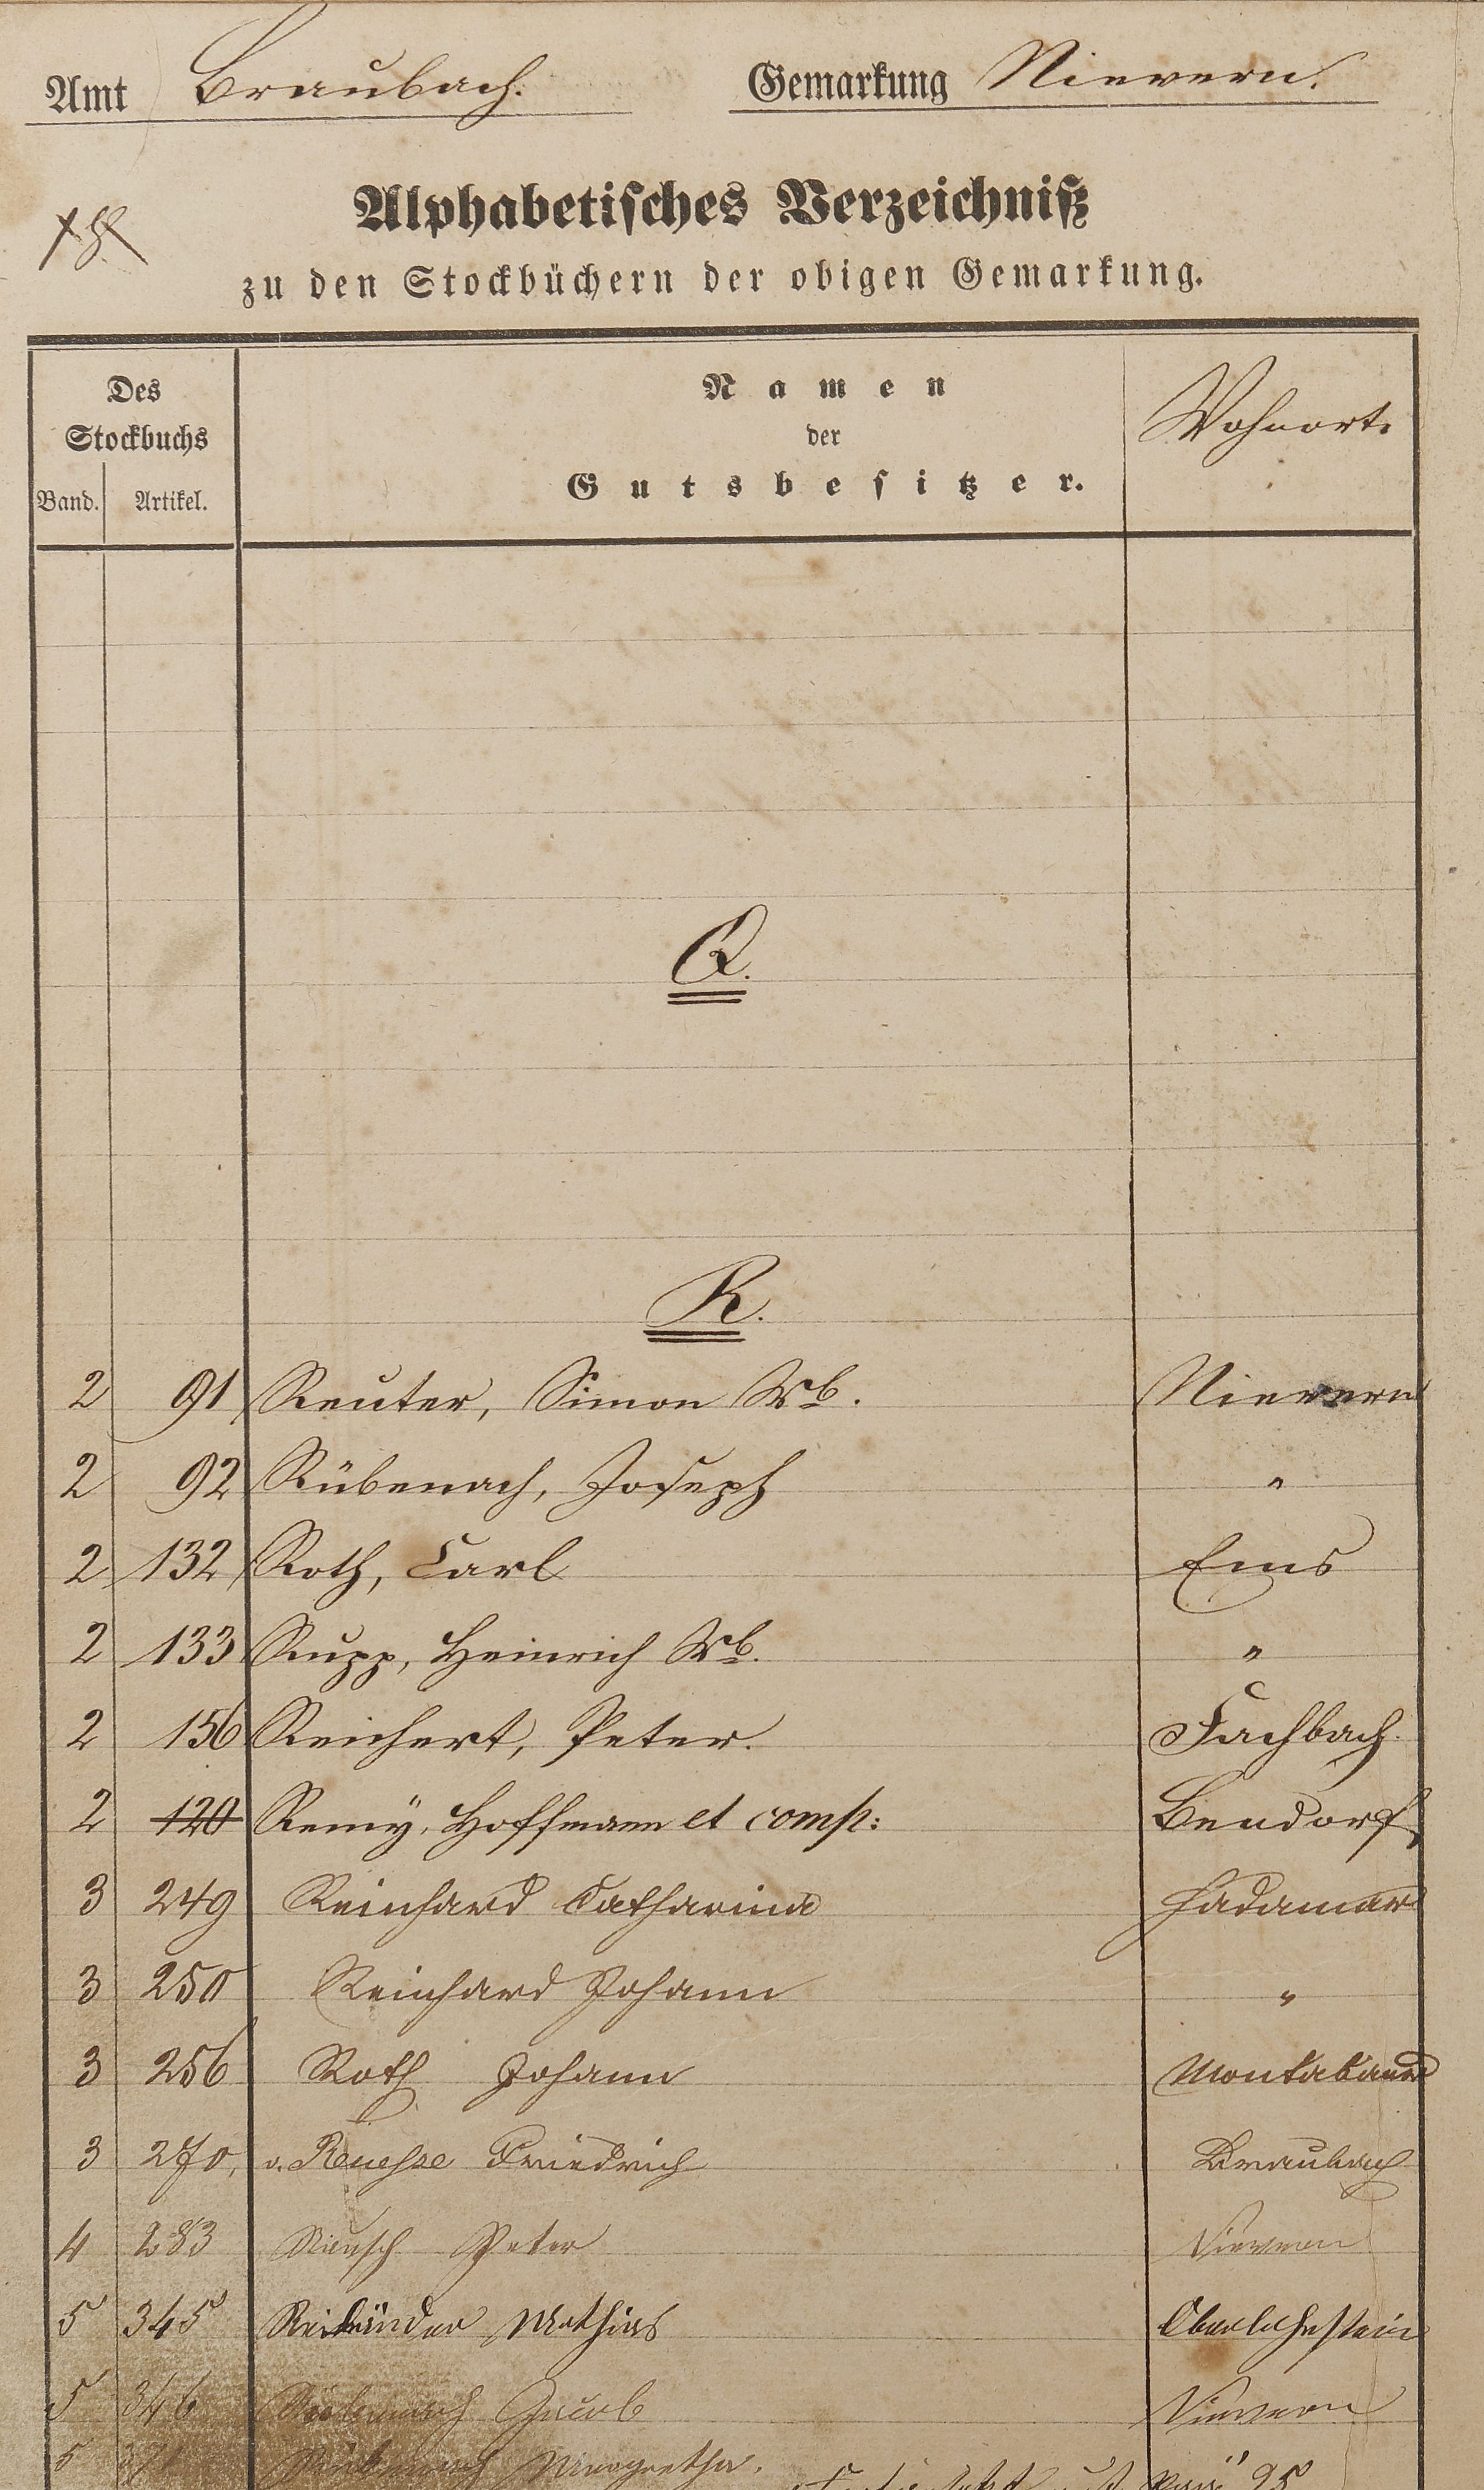 Amt Braubach. Gemarkung Nievern.
Alphabetisches Verzeichniß
zu den Stockbüchern der obigen Gemarkung.
Des
Stockbuchs
Band. Artikel.
Namen
der
Gutsbesitzer.
Wohnort.
Q.
R.
2 91 Reuter, Simon Wb. Nievern
2 92 Rübenach, Joseph "
2 132 Roth, Carl Ems
2 133 Rupp, Heinrich Wb. "
2 156 Reichert, Peter. Fachbach.
2 120 Remÿ, Hoffmann et comp: Bendorf
3 249 Reinhard Catharina Hadamar
3 250 Reinhard Johann "
3 256 Roth Johann Montabaur
3 270, v. Renesse Friedrich Braubach
4 283 Peter Nievern
5 345 Mathias Oberlahnstein
5 346 Rübenach Jacob Nievern
5 Rübenach Margretha.